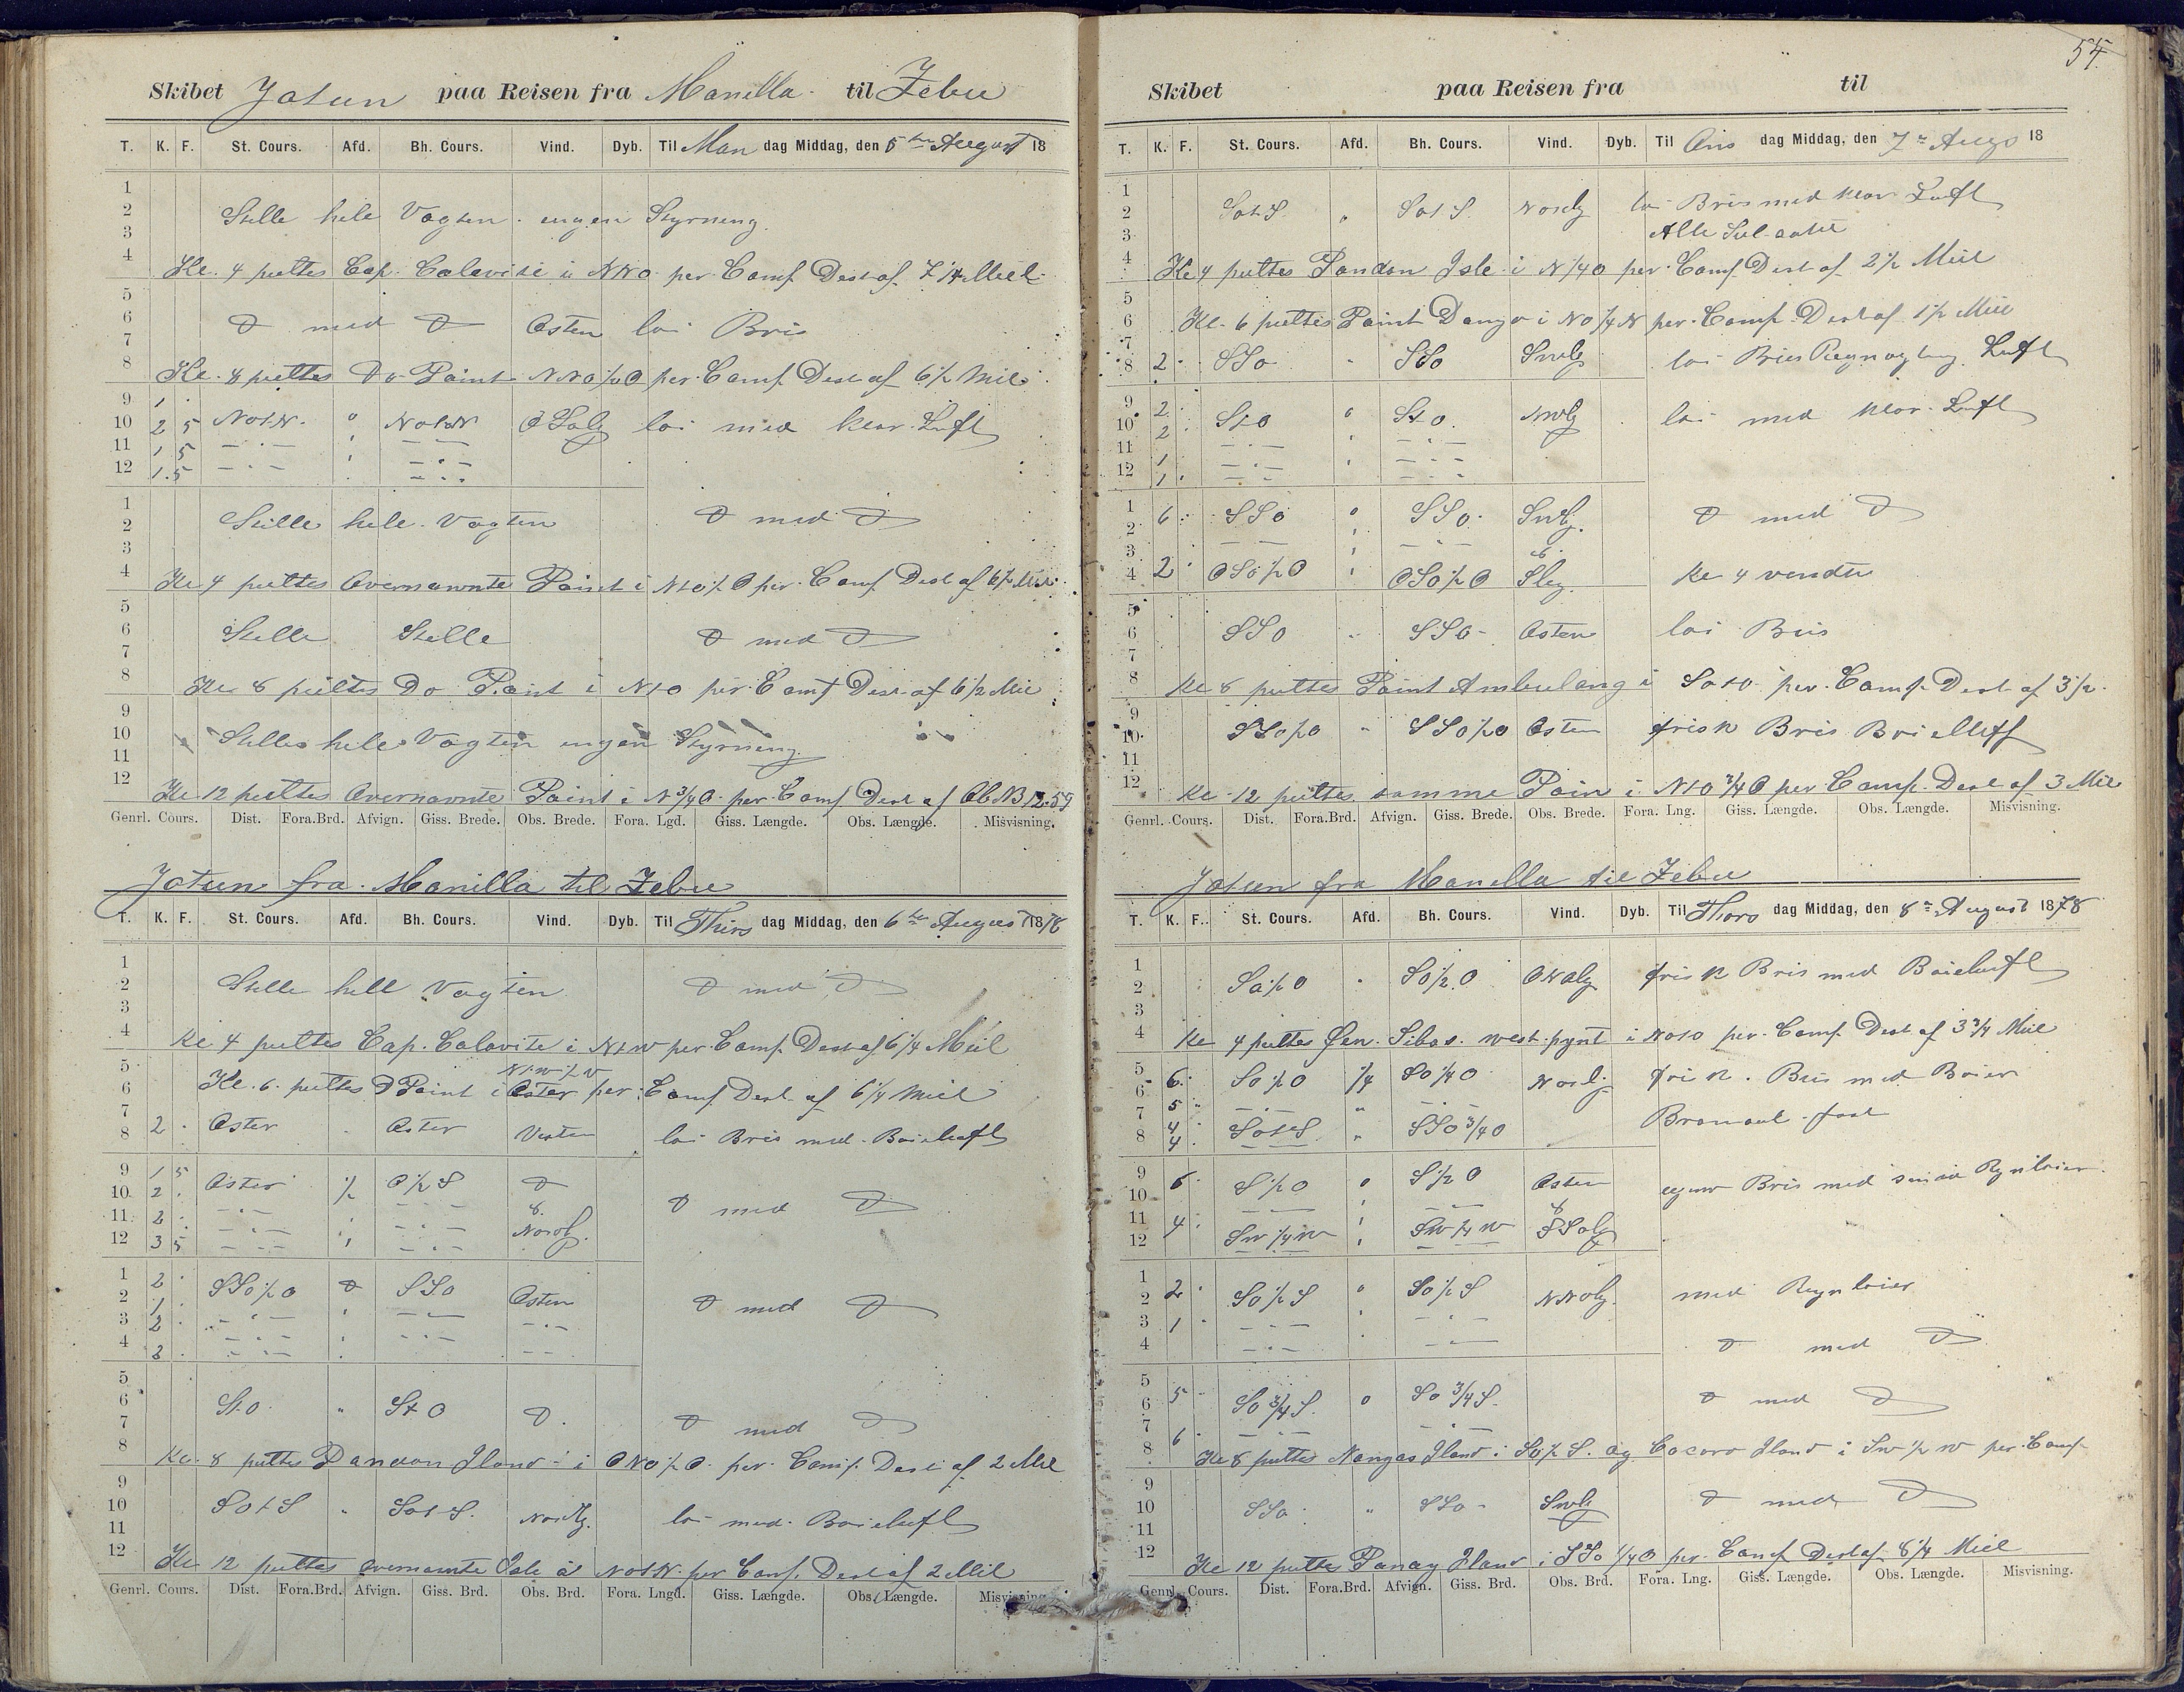 Skibet Jotun paa Reisen fra Manilla til Zebu
T. K. F. St. Cours. Afd. Bh. Cours. Vind. Dyb. Til Man dag Middag, den 5te August 18
1
2 Stille hele Vagten ingen Styrning
3
4 Kl. 4 peiltes Cap. Calavite i NNO per Comp Dest af 7 1/4 Miil
5
6 D med D Osten lai Bris
7
8 Kl. 8 peiltes Do Point NNO 1/2 O per Comp Dest af 6 1/2 Mil
9 1
10 2 5 NOtN. " NOtN OSolg lai med klar Luft
11 1 5
12 1.5
1
2 Stille hele Vagten D med D
3
4 Kl 4 peiltes Overnævnte Point i NtO 1/2 O per Comp Dest af 6 1/2 Mil
5
6 Stille Stille D med D
7
8 Kl 8 peiltes Do Point i NtO per Comp Dest af 6 1/2 Mil
9
10 Stille hele Vagten ingen Styrning
11
12 Kl 12 peiltes Overnævnte Point i N 3/4 O per Comp Dest af Ob. B 12.57
Genrl. Cours. Dist. Fora.Brd. Afvign. Giss. Brede. Obs. Brede. Fora. Lgd. Giss. Længde. Obs. Længde. Misvisning.
Jotun fra Manilla til Zebu
T. K. F. St. Cours. Afd. Bh. Cours. Vind. Dyb. Til Thirs dag Middag, den 6te August 1878
1
2 Stille hele Vagten D med D
3
4 Kl 4 peiltes Cap. Calavite i NtW per Comp Dest af 6 1/4 Miil
5 NtW 1/2 W
6 Kl. 6 peiltes D Point i Oster per Comp Dest. af 6 1/4 Miil
7
8 2 Oster Oster Vesten lai Bris med Baieluft
9 1 5 Oster 1/2 O 1/2 S D
10 2 D med D
11 2 &
12 3 5 Nordlg.
1 2 SSO 1/2 O D SSO Osten
2 1 D med D
3 2
4 2
5
6 StO " StO D. D med D
7
8 Kl. 8 peiltes Pandan Iland i ONO 1/2 O per Comp. Dest af 2 Mil
9
10 SOtS " SOtS. Nordlg. lai med Baieluft
11
12 Kl 12 peiltes overnævnte Isle i NOtN. per Comp. Dest af 2 Mil
Genrl. Cours. Dist. Fora.Brd. Afvign. Giss. Brd. Obs. Brd. Fora. Lngd. Giss. Længde. Obs. Længde. Misvisning.
54.
Skibet paa Reisen fra til
T. K. F. St. Cours. Afd. Bh. Cours. Vind. Dyb. Til Ons dag Middag, den 7de Augs 18
1
2 SOtS. " SOtS. Nordlg lai Bris med klar Luft
3 Alle Seil
4 Kl 4 peiltes Pandan Isle i N 1/4 O per Comp Dest af 2 1/2 Miil
5
6 Kl. 6 peiltes Point Dongo i NO 1/4 N per Comp Dest af 1 1/2 Miil
7
8 2 SSO " SSO Swlg lai Bris Luft
9 2
10 2 StO " StO. NWlg lai med klar Luft
11 1
12 1
1
2 6 SSO " SSO. Swlg. D med D
3 &
4 2 OSO 1/2 O OSO 1/2 O Slig. Kl 4 vendte
5
6 SSO " SSO Osten lai Bris
7
8 Kl 8 peiltes Point Ambulong i SOtO per Comp Dest af 3 1/2.
9
10 SSO 1/2 O " SSO 1/2 O Osten frisk Bris
11
12 Kl 12 peiltes samme Poin i NtO 3/4 O per Comp. Dest af 3 Mil
Genrl. Cours. Dist. Fora.Brd. Afvign. Giss. Brede. Obs. Brede. Fora. Lng. Giss. Længde. Obs. Længde. Misvisning.
Jotun fra Manilla til Zebu
T. K. F. St. Cours. Afd. Bh. Cours. Vind. Dyb. Til Thors dag Middag, den 8de August 1878
1
2 SO 1/2 O " SO 1/2 O frisk Bris med Baieluft
3
4 Kl 4 peiltes Øen Sibay west pynt i NOtO per Comp Dest af 3 3/4 Miil
5 6 SO 1/2 O 1/4 SO 1/4 O Nordlig frisk Bris med Baier
6 5
7 4 Bramseil fast
8 4 SOtS " SSO 3/4 O
9
10 6 S 1/2 O " S 1/2 O Osten Bris med smaa Regnbaier
11 &
12 4 SW 1/4 W SW 1/4 W SSolg
1
2 2 SO 1/2 S " SO 1/2 S NNOlg. med Regnbaier
3 1
4 D med D
5
6 5 SO 3/4 S. " SO 3/4 S. D med D
7
8 6 Kl 8 peiltes Nangas Iland i SO 1/2 S. og Cocoro Iland i SW 1/2 W per Comp
9
10 SSO " SSO Swlg D med D
11
12 Kl 12 peiltes Panay Iland i SSO 1/4 O per Comp Dest af 8 1/4 Miil
Genrl. Cours. Dist. Fora.Brd. Afvign. Giss. Brd. Obs. Brd. Fora. Lng. Giss. Længde. Obs. Længde. Misvisning.